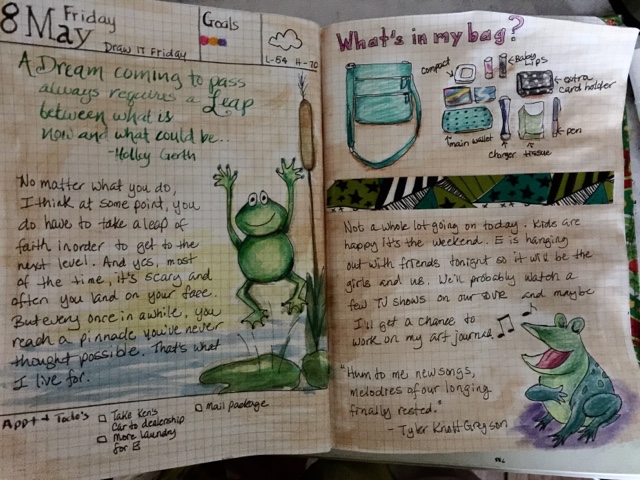 8 May
Friday
Draw IT Friday
Goals
L-54 H-70
A Dream coming to pass
always requires a Leap
between what is
now and what could be...
-Holley Gerth
No matter what you do,
I think at some point, you
do have to take a leap of
faith in order to get to the
next level. And yes, most
of the time, it's scary and
often you land on your face.
But every once in awhile, you
reach a pinnacle you've never
thought possible. That's what
I live for.
Appt + Todo's
Take Ken's
Car to dealership
more laundry
for E
mail package
What's in my bag?
compact
Baby lips
extra
card holder
main wallet
charger
tissue
pen
Not a whole lot going on today. Kids are
happy it's the weekend. E is hanging
out with friends tonight so it will be the
girls and us. We'll probably watch a
few TV shows on our DVR and maybe
I'll get a chance to
work on my art journal
"Hum to me, new songs,
melodies of our longing
finally rested."
- Tyler Knott Gregson